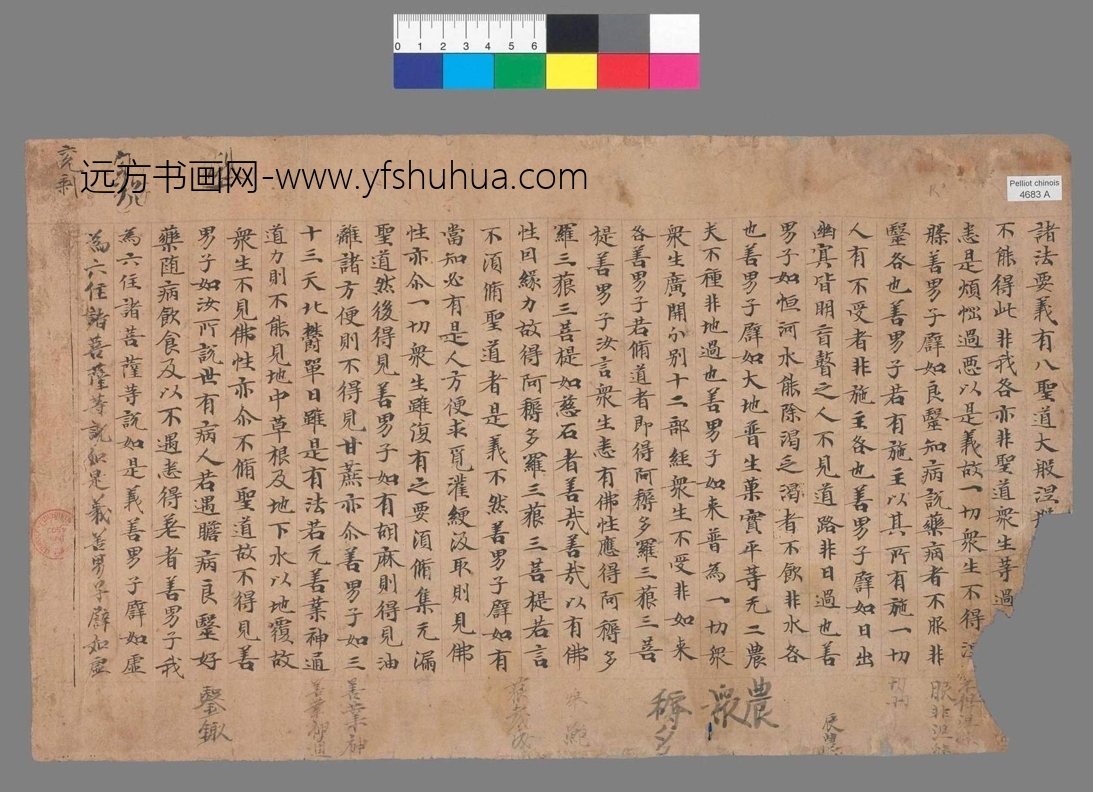 远方书画网-www.yfshuhua.com
0 1 2 3 4 5 6
Pelliot chinois
4683 A
諸法要義有八聖道大般涅
不能得此非我咎亦非聖道衆生等過
悉是煩惱過惡以是義故一切衆生不得涅
槃善男子譬如良醫知病說藥病者不服非
醫咎也善男子若有施主以其所有施一切
人有不受者非施主咎也善男子譬如日出
幽冥皆明盲瞽之人不見道路非日過也善
男子如恒河水能除渴乏渴者不飲非水咎
也善男子譬如大地普生菓實平等无二農
夫不種非地過也善男子如来普為一切衆
衆生廣開分別十二部經衆生不受非如来
咎善男子若脩道者即得阿耨多羅三藐三菩
提善男子汝言衆生悉有佛性應得阿耨多
羅三藐三菩提如慈石者善哉善哉以有佛
性因緣力故得阿耨多羅三藐三菩提若言
不須脩聖道者是義不然善男子譬如有
當知必有是人方便求覓灌綆汲取則見佛
性亦尒一切衆生雖復有之要須脩集无漏
聖道然後得見善男子如有胡麻則得見油
離諸方便則不得見甘蔗亦尒善男子如三
十三天北欝單曰雖是有法若无善業神通
道力則不能見地中草根及地下水以地覆故
衆生不見佛性亦尒不脩聖道故不得見善
男子如汝所說世有病人若遇瞻病良醫好
藥随病飲食及以不遇悉得差者善男子我
為六住諸菩薩等說如是義善男子譬如虛
為六住諸菩薩等說如是義善男子譬如虛
服非
農
衆
耨多
善業神
善業神通